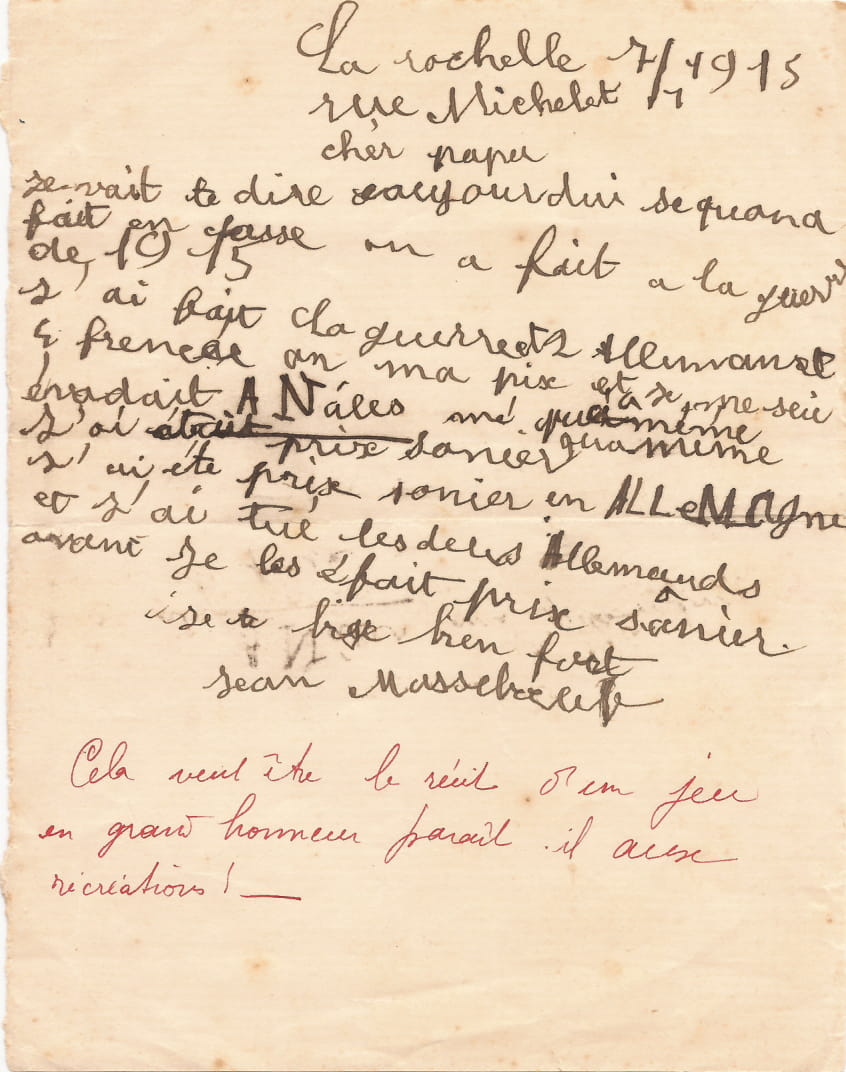 La rochelle 7/1 1915
rue Michelet
chèr papa
se vait te dire aujourdui se quand
fait en classe on a fait a la guerre
de 1915
s'ai fait la guerre et 2 Allemans et
4 francais on ma pix et se me seu
évadait mé quamême
s'ai prix sonier quamime
s'ai été prix sonier en ALLeMAgne
et s'ai tué les deus Allemands
avant se les fait prix sânier.
se te bige bien fort
Jean
Cela veut être le récit d'un jeu
en grand honneur paraît-il aux
récréations! —